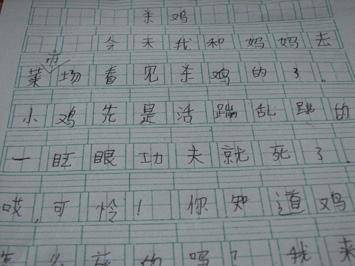 杀鸡
今天我和妈妈去
菜市场看见杀鸡的了。
小鸡先是活蹦乱跳的
一眨眼功夫就死了
哎,可怜!你知道鸡
是怎么杀的吗?我来